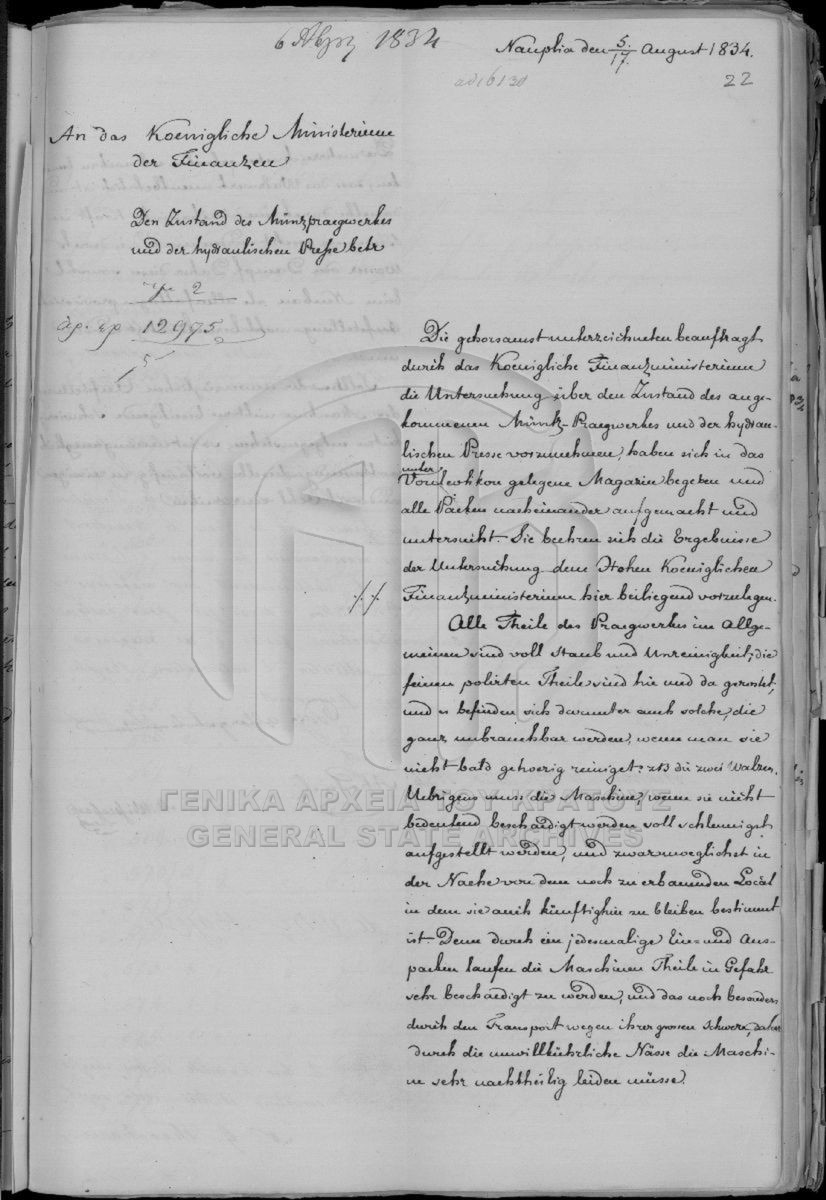 6 Αυγ 1834
Nauplia den 5/17 August 1834.
ad 16130
22
An das Koenigliche Ministerium
der Finanzen
Den Zustand des Münzpraegwerkes
und der hydraulischen Presse betr
2
αρ. πρ 12975
Die gehorsamst unterzeichneten beauftragt
durch das Koenigliche Finanzministerium
die Untersuchung über den Zustand des ange-
kommenen Müntz-Praegwerkes und der hydrau-
lischen Presse vorzunehmen, haben sich in das
unter
Vouleutikon gelegene Magazin begeben und
alle Päcken nacheinander aufgemacht und
untersucht. Sie beehren sich die Ergebnisse
der Untersuchung dem Hohen Koeniglichen
Finantzministerium hier beiliegend vorzulegen.
Alle Theile des Praegwerkes im Allge-
meinen sind voll Staub und Unreinigkeit, die
feinen polirten Theile sind hie und da gerostet,
und es befinden sich darunter auch solche, die
ganz unbrauchbar werden, wenn man sie
nicht bald gehoerig reiniget: zB die zwei Walzen.
Uebrigens muss die Maschine, wenn sie nicht
bedeutend beschaedigt werden soll schleunigst
aufgestellt werden, und zwar moeglichst in
der Naehe von dem noch zu erbauenden Local
in dem sie auch künftighin zu bleiben bestimmt
ist. Denn durch ein jedesmalige Ein- und Aus-
packen laufen die Maschinen Theile in Gefahr
sehr beschaedigt zu werden, und das noch besonders
durch den Transport wegen ihrer grossen Schwere, daher
durch die unwillkührliche Nässe die Maschi-
ne sehr nachtheilig leiden müsse.
ΓΕΝΙΚΑ ΑΡΧΕΙΑ ΤΟΥ ΚΡΑΤΟΥΣ
GENERAL STATE ARCHIVES